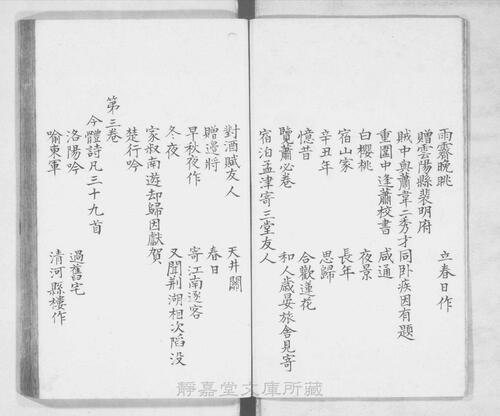 雨霽晚眺 立春日作
贈雲陽縣裴明府
賊中與蕭韋二秀才同卧疾因有題
重圍中逢蕭校書 咸通
白櫻桃 夜景
宿山家 長年
辛丑年 思歸
憶昔 合歡蓮花
覽蕭必卷 和人歲晏旅舍見寄
宿泊孟津寄三堂友人
對酒賦友人 天井關
贈邊將 春日
早秋夜作 寄江南逐客
冬夜 又聞荆湖相次陷沒
家叔南遊却歸因獻賀
楚行吟
第三卷
今體詩凡三十九首
洛陽吟 過舊宅
喻東軍 清河縣樓作
靜嘉堂文庫所藏